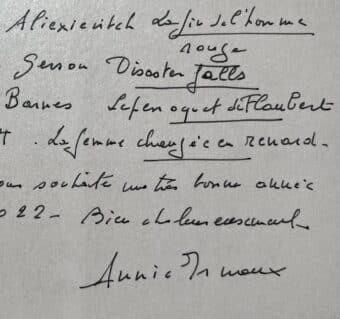 Alexievitch La fin de l'homme
rouge
Gerson Disaster Falls
Barnes Le perroquet de Flaubert
. La femme changée en renard.
souhaite une très bonne année
22 - Bien chaleureusement
Annie Ernaux